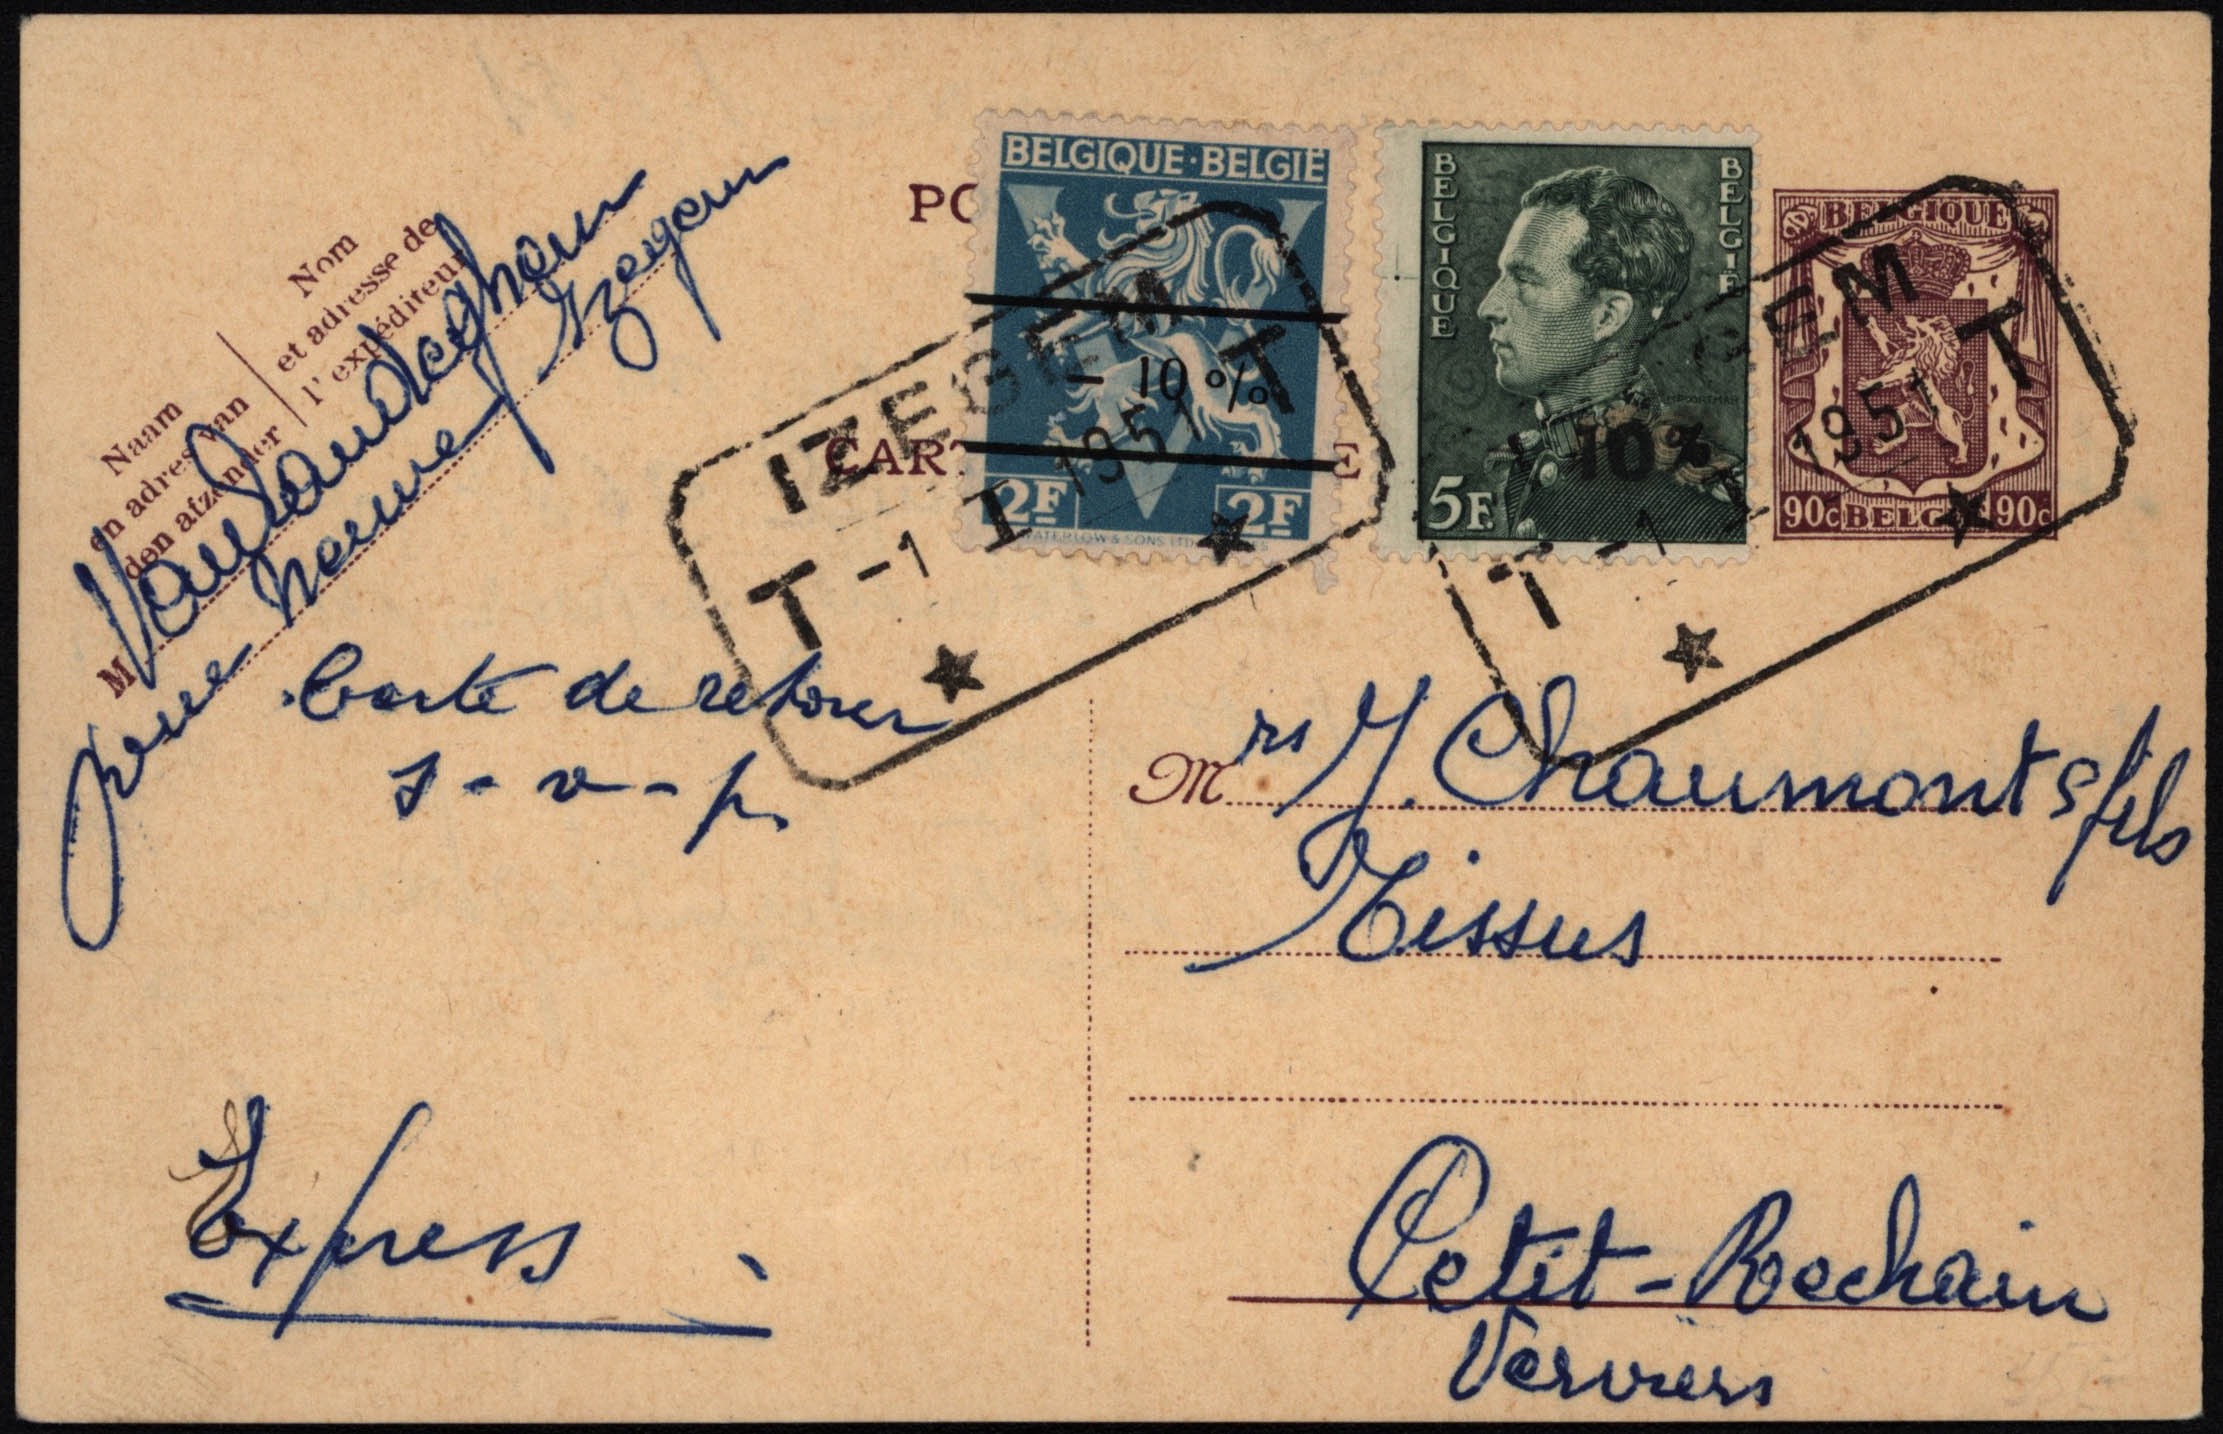 Naam
en adres van
den afzender
Nom
et adresse de
l'expéditeur
M
Izegem
PO
CART
E
BELGIQUE·BELGIË
- 10 %
2F 2F
WATERLOW & SONS LTD
BELGIQUE
BELGIË
10%
5F.
BELGIQUE
90c BELGIË 90c
IZEGEM
T T
-1 I 1951
GEM
T T
-1 1951
Carte de retour
s-v-p.
Mrs J. Chaumont & fils
Tissus
Express
Petit-Rechain
Verviers